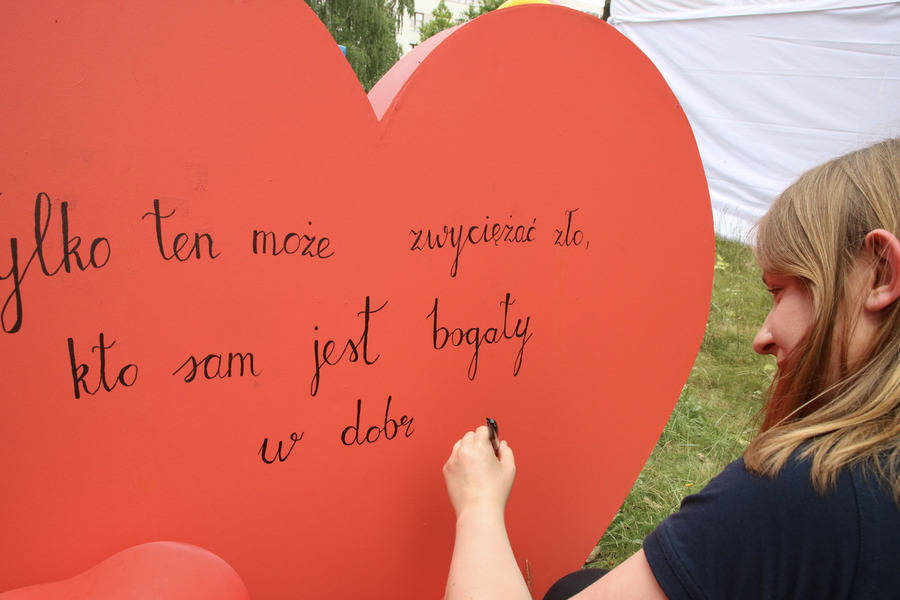 Tylko ten może zwyciężać zło,
kto sam jest bogaty
w dobr